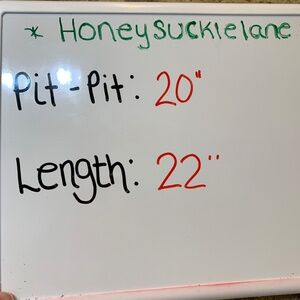 * Honeysucklelane
Pit-Pit: 20"
Length: 22"